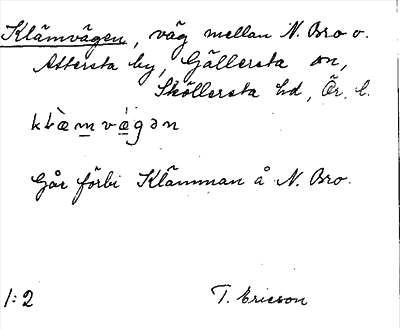 Klämvägen, väg mellan N. Bro o.
Attersta by, Gällersta sn,
Sköllersta hd, Ör. l.
klæ̀mvǽgən
Går förbi Klämman å N. Bro.
1:2 T. Ericson